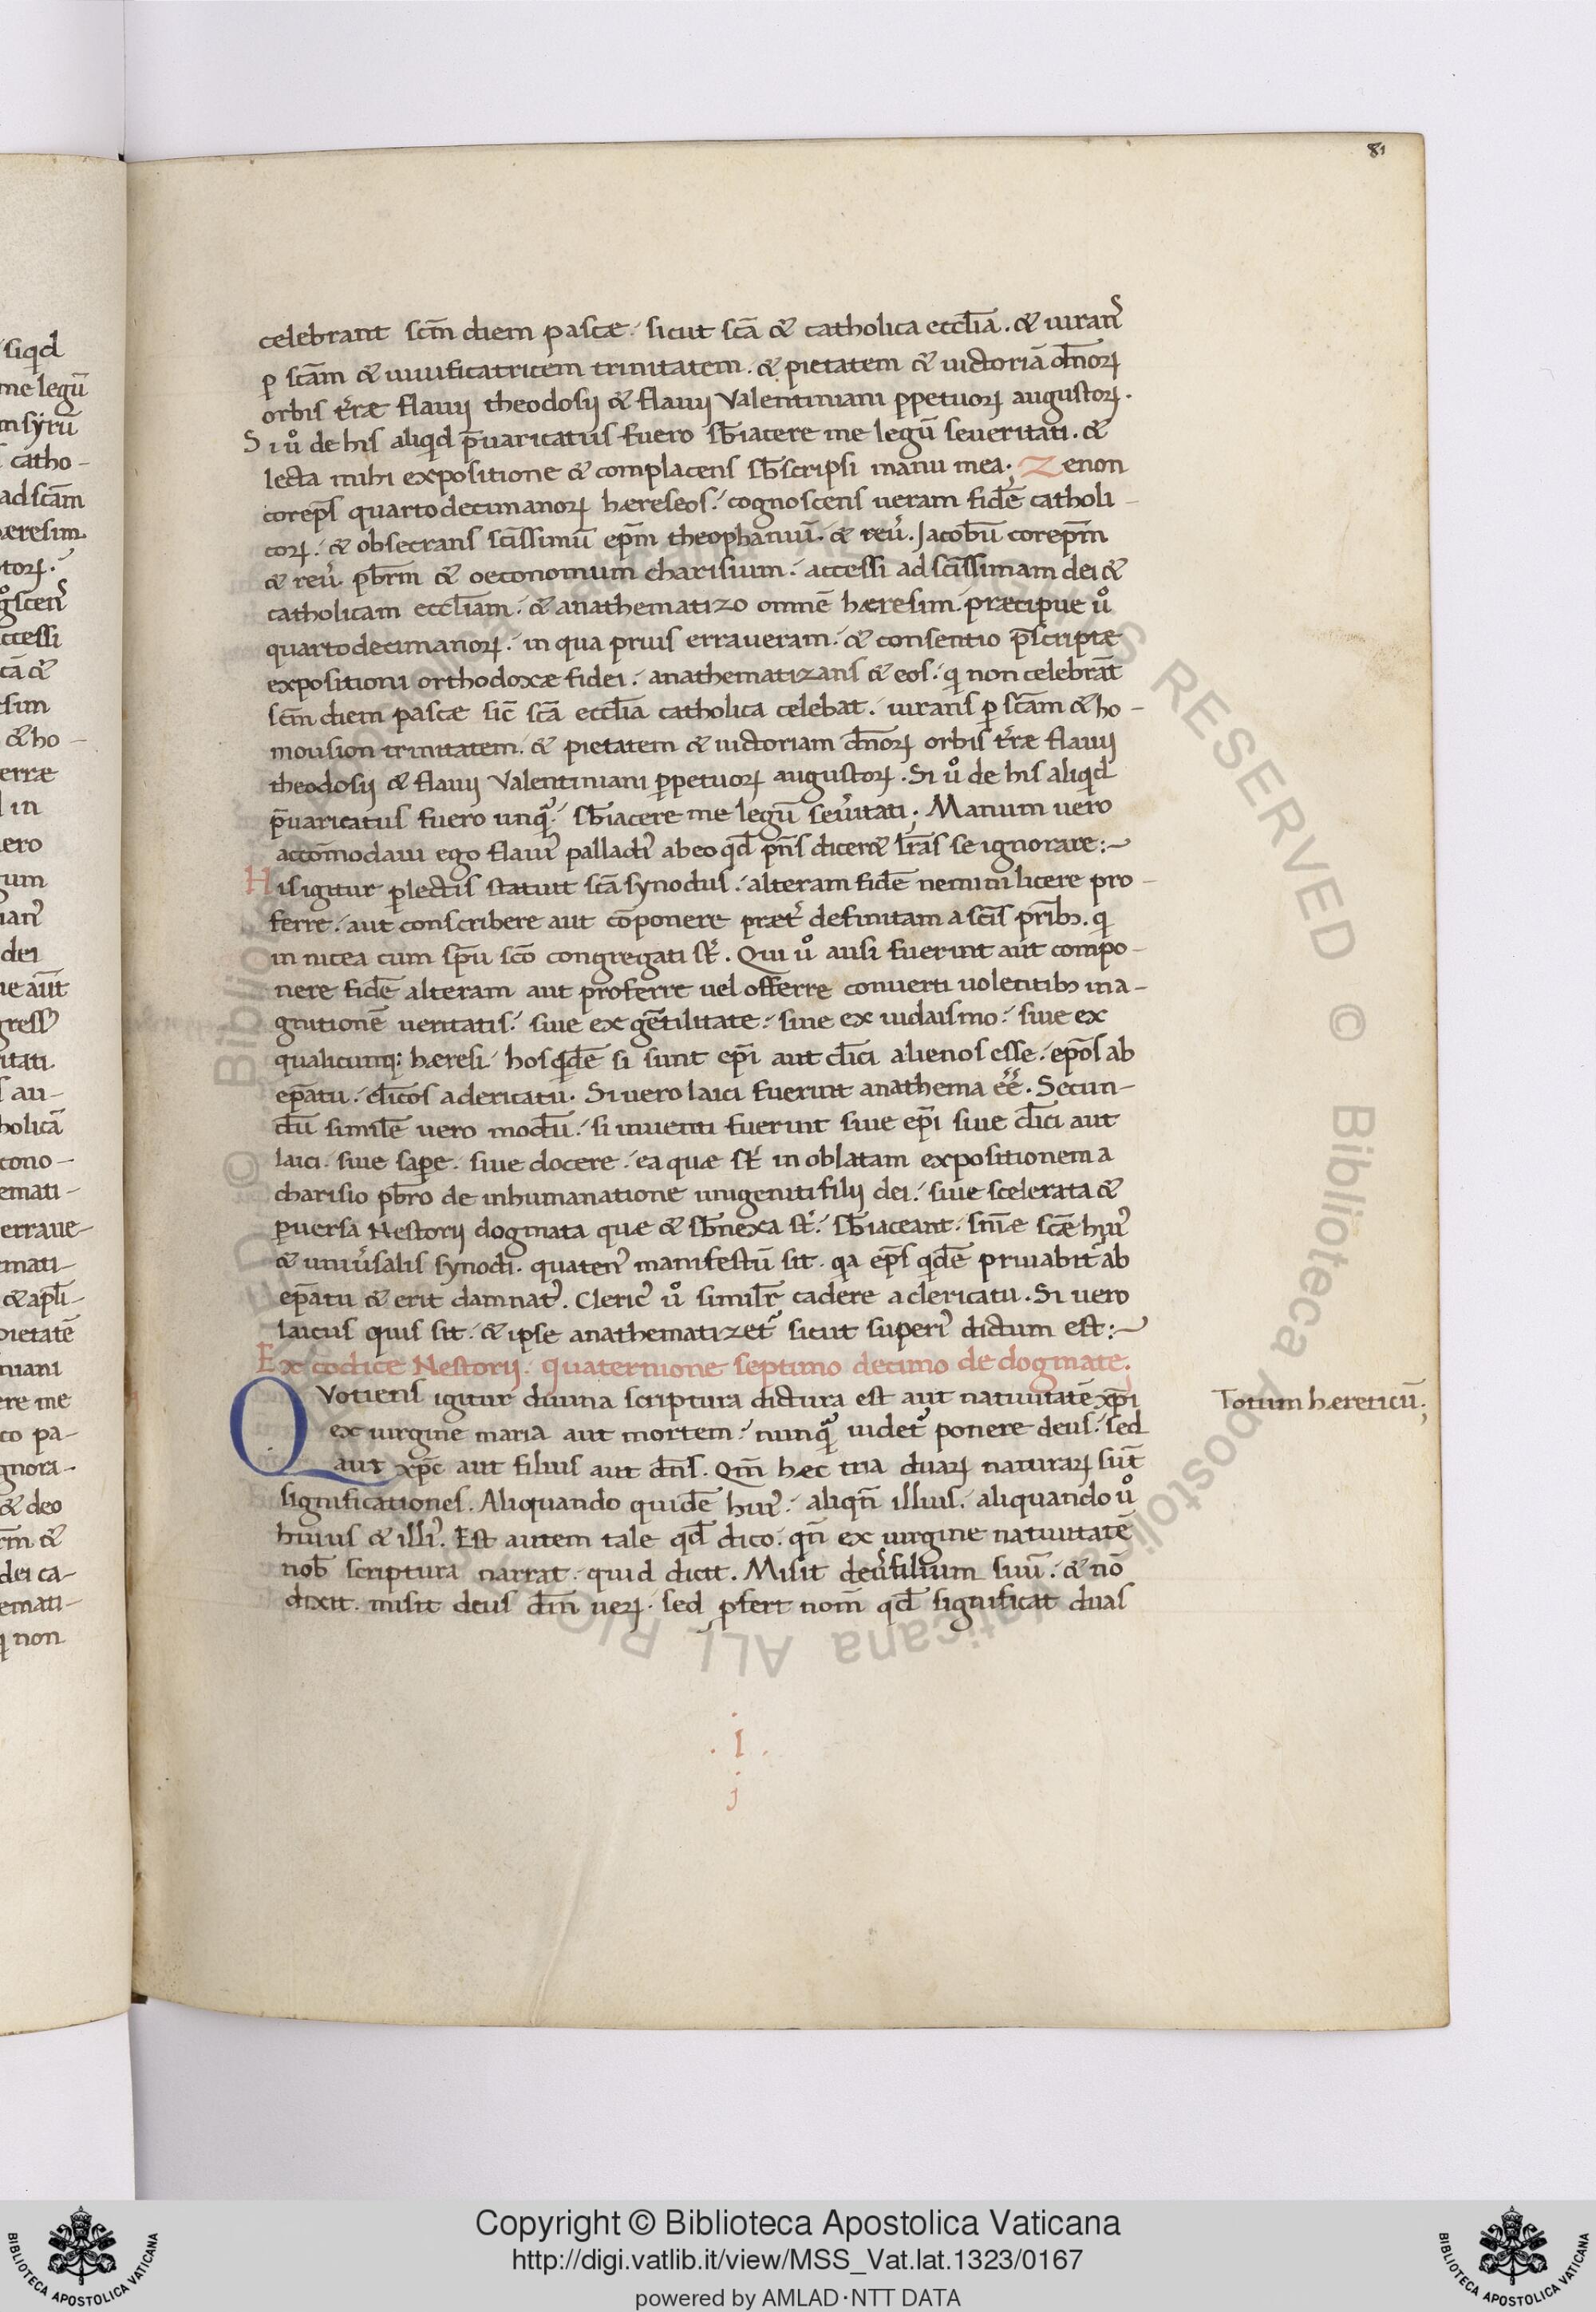 81
celebrant scm̄ diem pascæ. sicut scā & catholica eccłia. & iurans
ꝑ scām & uiuificatricem trinitatem. & pietatem & uictoriā dn̄oꝝ
orbis t̓ræ flauij theodosij & flauij Valentiniani ꝑpetuoꝝ augustoꝝ.
Si uͦ de his aliqd p̄uaricatus fuero sƀiacere me legū seueritati. &
lecta mihi expositione & complacens sƀscripsi manu mea; Zenon
corep̄s quartodecimanoꝝ hæreseos. cognoscens ueram fidē catholi-
coꝝ. & obsecrans scīssimū ep̄m theophaniū. & reu̓. Jacobū corep̄m
& reu̓. pƀrm & oeconomum charisium. accessi ad scīssimam dei &
catholicam eccłiam. & anathematizo omnē hæresim. præcipue uͦ
quartodecimanoꝝ. in qua prius erraueram. & consentio p̄scriptæ
expositioni orthodoxæ fidei. anathematizans & eos. qi non celebrāt
scm̄ diem pascæ sic̄ scā eccłia catholica celebat. iurans ꝑ scām & ho-
mousion trinitatem. & pietatem & uictoriam dn̄oꝝ orbis t̓ræ flauij
theodosij & flauij Valentiniani ꝑpetuoꝝ augustoꝝ. Si uͦ de his aliqid
p̄uaricatus fuero unqᷓ. sƀiacere me legū seu̓itati; Manum uero
accōmodaui ego flaui᾽ palladi᾽ ab eo qd̄ pn̄s dicer& lr̄as se ignorare:~
His igitur ꝑlectis statuit scā synodus. alteram fidē nemini licere pro-
ferre. aut conscribere aut cōponere præt̓ definitam a scīs prībꝫ. qi
in nicea cum sp̄u scō congregati st̄. Qui uͦ ausi fuerint aut compo-
nere fidē alteram aut proferre uel offerre conuerti uolentibꝫ in a-
gnitionē ueritatis. siue ex gētilitate. siue ex iudaismo. siue ex
qualicumq: hæresi. hos qidē si sunt ep̄i aut cłici alienos esse. ep̄os ab
ep̄atu. cłicos a clericatu. Si uero laici fuerint anathema ēē. Secun-
dū similē uero modū. si inuenti fuerint siue ep̄i siue cłici aut
laici. siue saꝑe. siue docere. ea quæ st̄ in oblatam expositionem a
charisio pƀro de inhumanatione unigeniti filij dei. siue scelerata &
ꝑuersa Nestorij dogmata quæ & sƀnexa st̄. sƀiaceant. sn̄iæ scæ hui᾽
& uniu̓salis synodi. quaten᾽ manifestū sit. qa ep̄s qidē priuabit᾽ ab
ep̄atu & erit damnat᾽. Cleric᾽ uͦ similr̄ cadere a clericatu. Si uero
laicus quis sit. & ipse anathematizet᾽ sicut superi᾽ dictum est:~
Ex codice Nestorij. quaternione septimo decimo de dogmate;
QVotiens igitur diuina scriptura dictura est aut natiuitatē xp̄i
ex uirgine maria aut mortem. nunqᷓ uidet᾽ ponere deus. sed
aut xp̄c aut filius aut dn̄s. Qm̄ hæc tria duaꝝ naturaꝝ sūt
significationes. Aliquando quidē hui᾽. aliqn̄ illius. aliquando uͦ
huius & illi᾽. Est autem tale qd̄ dico. qn̄ ex uirgine natiuitatē
nob̄ scriptura narrat. quid dicit. Misit de᾽ filium suū. & nō
dixit. misit deus dm̄ uerꝫ. sed ꝓfert nom̄ qd̄ significat duas
Totum hæreticū;
. I .
Copyright © Biblioteca Apostolica Vaticana
http://digi.vatlib.it/view/MSS_Vat.lat.1323/0167
powered by AMLAD·NTT DATA